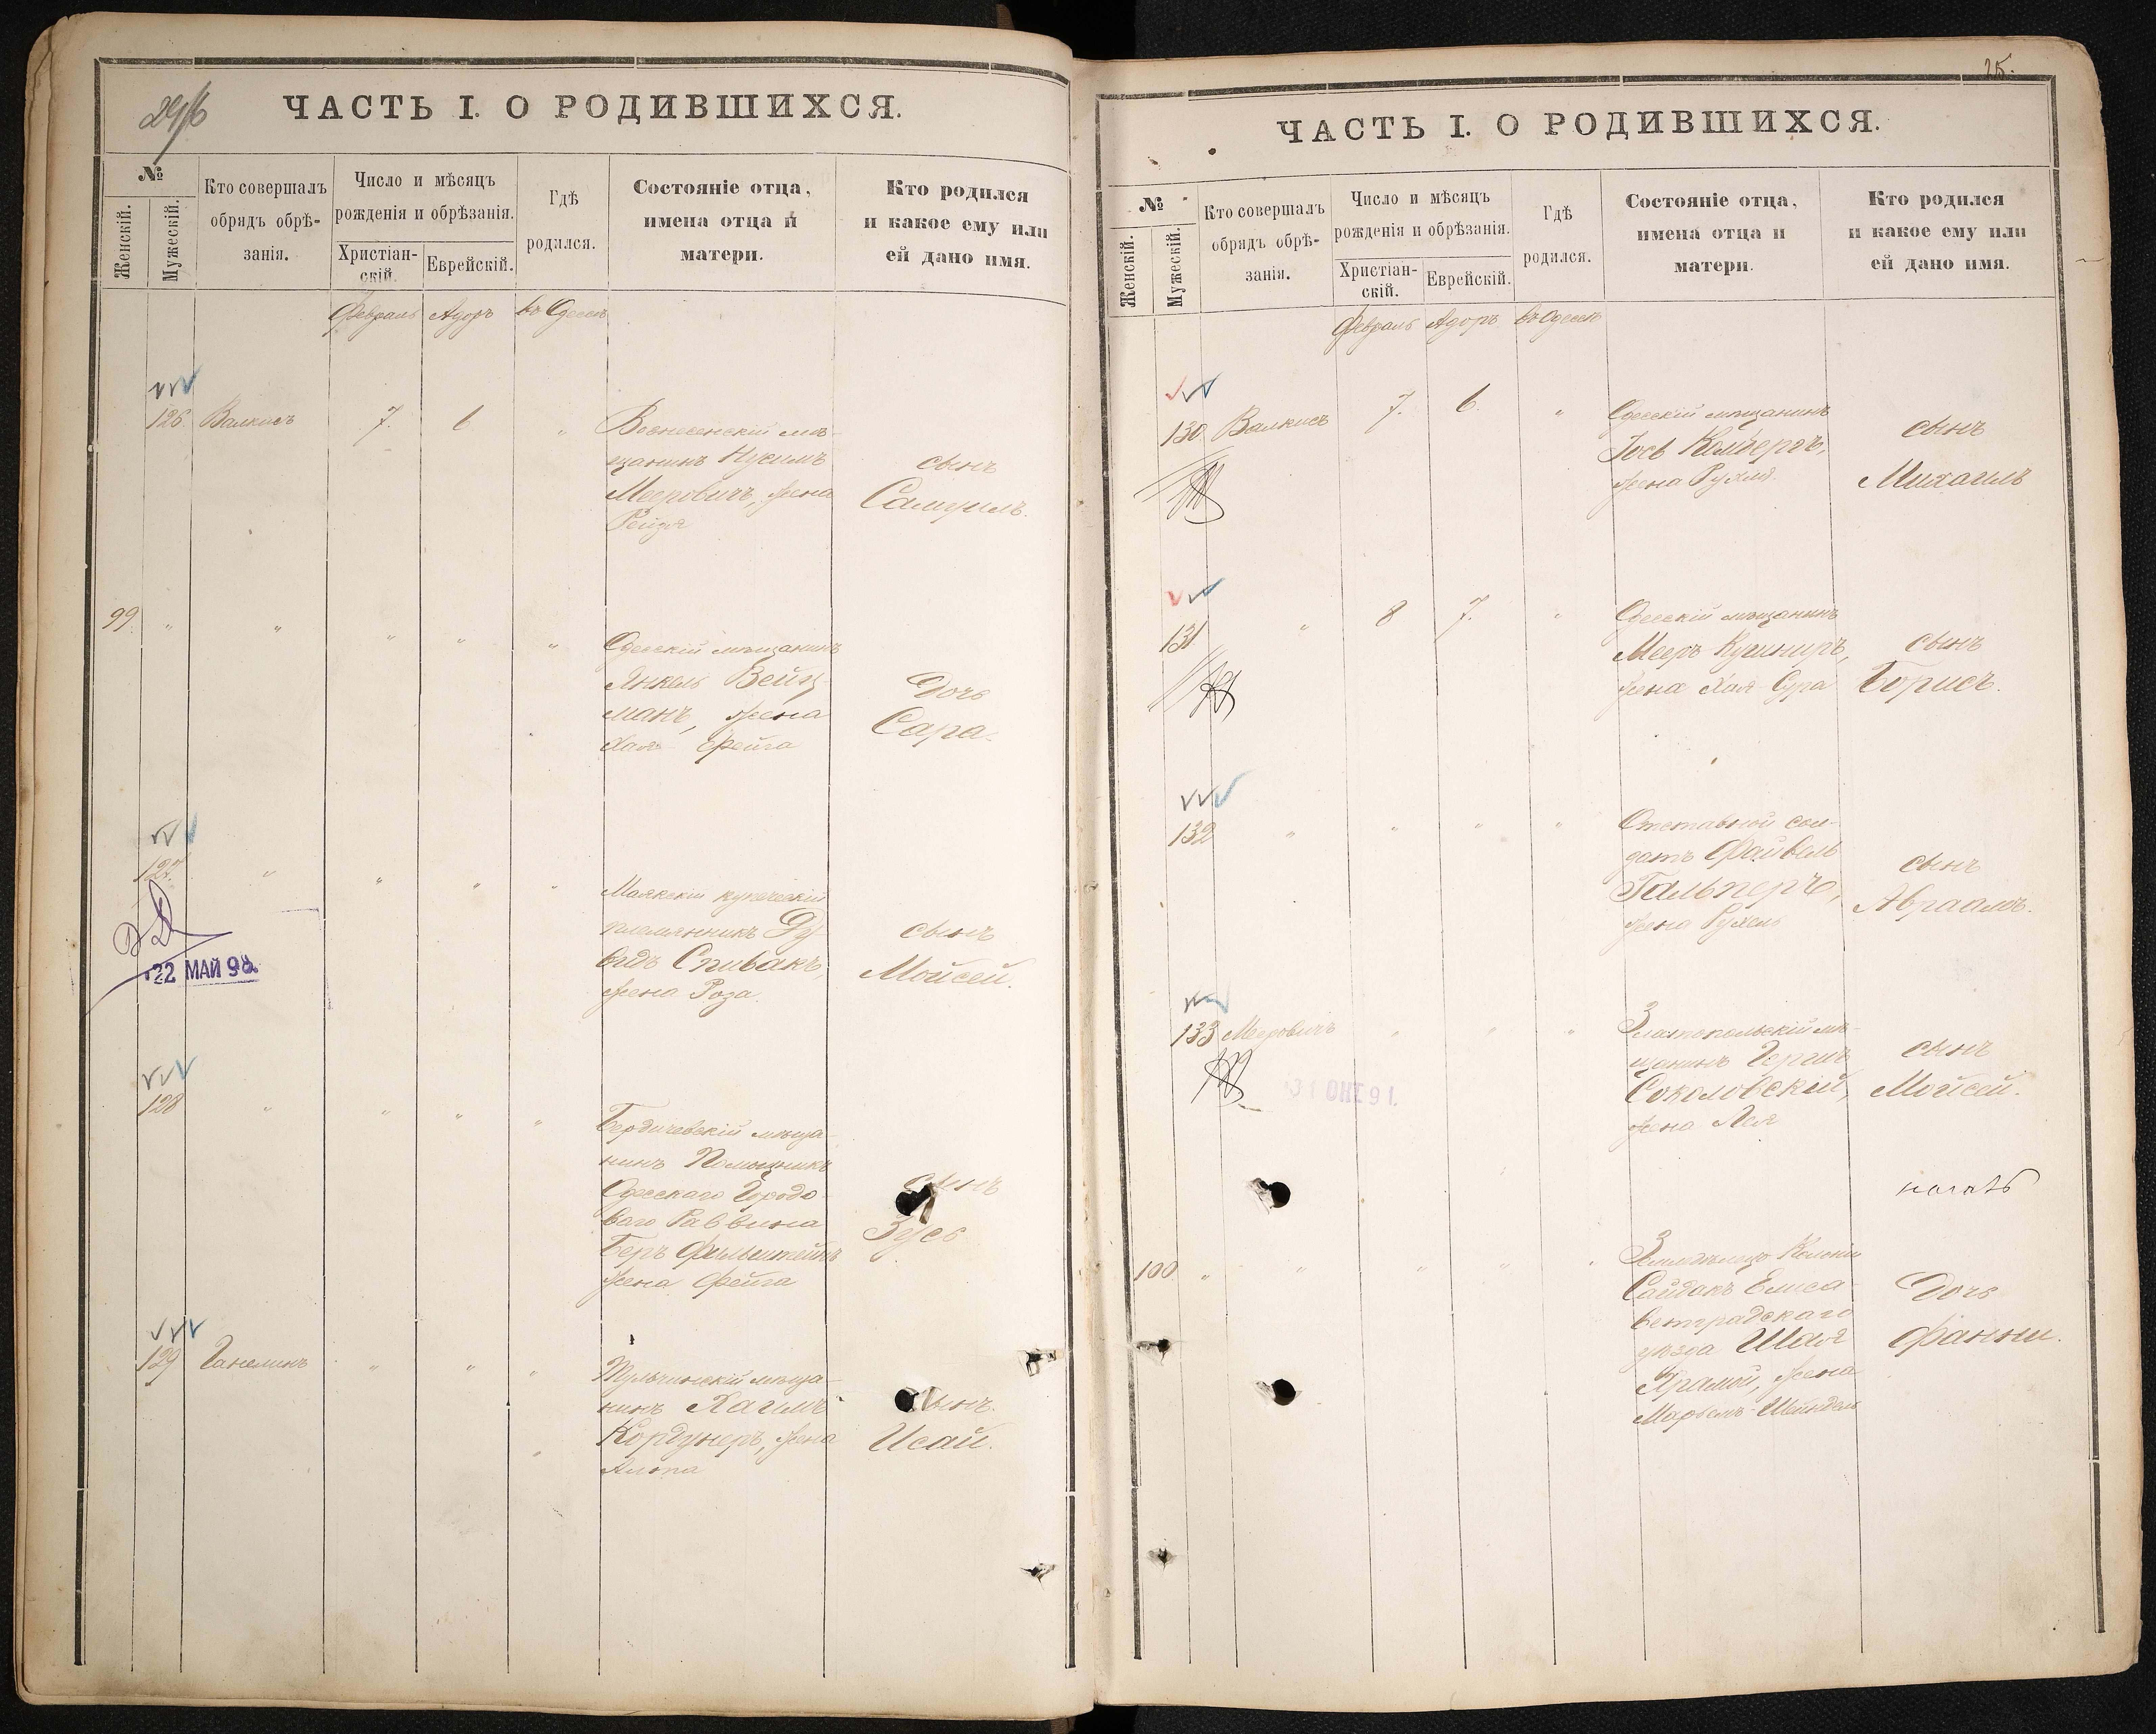 ЧАСТЬ I. О РОДИВШИХСЯ.
№
Женскій.
Мужескій.
Кто совершалъ
обрядъ обрѣ-
занія.
Число и мѣсяцъ
рожденія и обрѣзанія.
Христіан-
скій.
Еврейскій.
Гдѣ
родился.
Состояніе отца,
имена отца и
матери.
Кто родился
и какое ему или
ей дано имя.
Февраль Адоръ въ Одессѣ
126 Валкисъ 7. 6 "
Вознесенскій мѣ-
щанинъ Нусимъ
Мееровичъ, жена
Рейзя
сынъ
Самуилъ.
99. " " " " "
Одесскій мѣщанинъ
Янкель Вейц-
манъ, жена
Хая Фейга
Дочь
Сара.
127. " " " "
Маякскій купеческій
племянникъ Ду-
видъ Спивакъ,
жена Роза.
сынъ
Мойсей.
22 МАЙ 98.
128 " " " "
Бердичевскій мѣща-
нинъ Помощникъ
Одесскаго Городо-
ваго Раввина
Беръ
жена Фейга
сынъ
Зусь
129 Ганелинъ " " "
Тульчинскій мѣща-
нинъ Хаимъ
Кордунеръ, жена
сынъ.
Исай.
25.
ЧАСТЬ I. О РОДИВШИХСЯ.
№
Женскій.
Мужескій.
Кто совершалъ
обрядъ обрѣ-
занія.
Число и мѣсяцъ
рожденія и обрѣзанія.
Христіан-
скій.
Еврейскій.
Гдѣ
родился.
Состояніе отца,
имена отца и
матери.
Кто родился
и какое ему или
ей дано имя.
Февраль Адоръ въ Одессѣ
130 Валкисъ 7. 6. "
Одесскій мѣщанинъ
Іось
жена Рухля
сынъ
Михаилъ
131 " 8 7. "
Одесскій мѣщанинъ
Мееръ Кушниръ,
жена Хая Сура
сынъ
Борисъ.
132 " " " "
Отставной сол-
датъ Файвель
Гальперъ,
жена Рухель
сынъ
Авраамъ.
133 Мееровичъ " " "
Златопольскій мѣ-
щанинъ Гершъ
Соколовскій,
жена Лея
сынъ
Мойсей.
31 ОКТ 91.
100 " " " " "
Земледѣлецъ Колоніи
Сайдакъ Елиса-
ветградскаго
уѣзда Шая
Храмой, жена
Марьемъ-Шейндель
Дочь
Фанни.